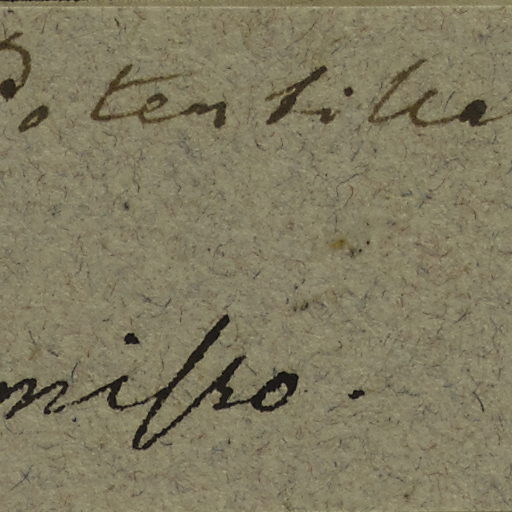 Potentilla
miſso.